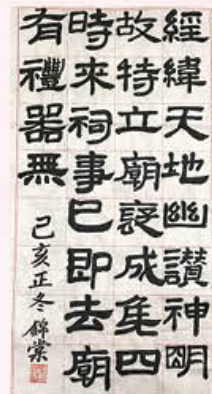 經緯天地幽讚神明
故特立廟裦成矦四
時來祠事已即去廟
有禮器無
己亥正冬錦棠